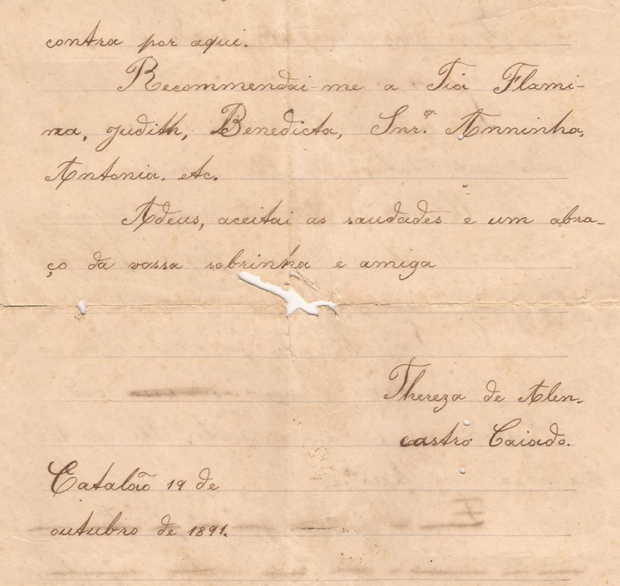 contra por aqui.
Recommendai-me a Tia Flami-
na, Judith, Benedicta, Snrª. Anninha,
Antonia. etc.
Adeus, aceitai as saudades e um abra-
ço da vossa sobrinha e amiga
Thereza de Alen-
castro Caiado.
Catalão 19 de
outubro de 1891.